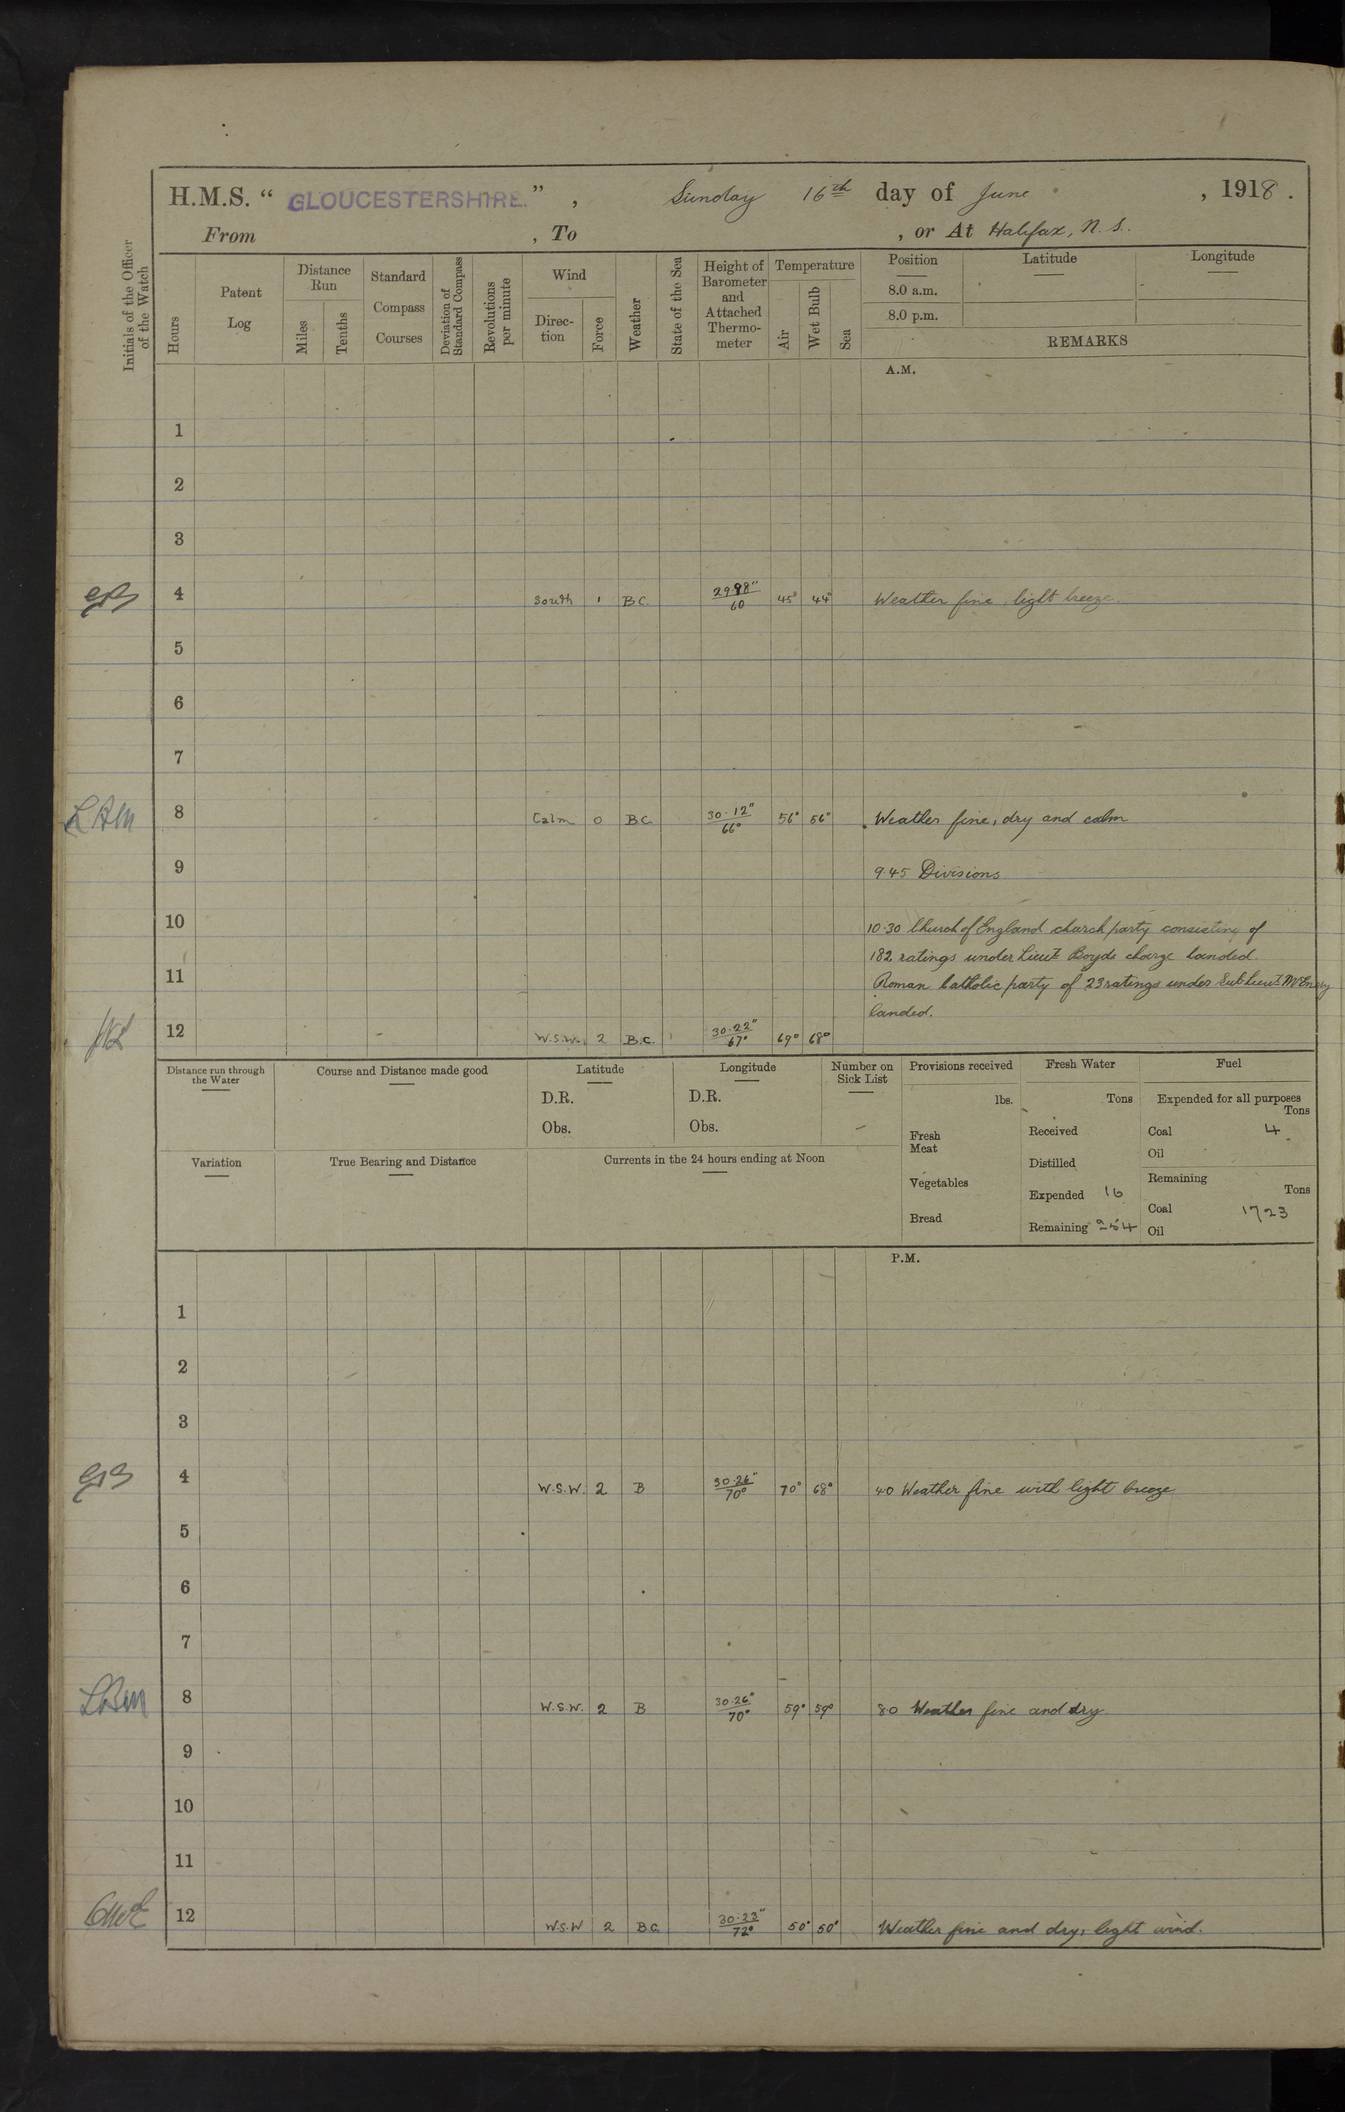 H.M.S. “ GLOUCESTERSHIRE. ” , Sunday 16th day of June , 1918.
From , To , or At Halifax, N.S.
Initials of the Officer of the Watch
Hours
Patent Log
Distance Run
Miles
Tenths
Standard Compass Courses
Deviation of Standard Compass
Revolutions per minute
Wind
Direc-tion
Force
Weather
State of the Sea
Height of Barometer and Attached Thermo-meter
Temperature
Air
Wet Bulb
Sea
Position
8.0 a.m.
8.0 p.m.
Latitude
Longitude
REMARKS
A.M.
1
2
3
4 South 1 B.C. 29.98" 60 45° 44° Weather fine, light breeze.
5
6
7
8 Calm 0 B.C. 30.12" 66° 56° 56° Weather fine, dry and calm
9 9.45 Divisions
10 10.30 Church of England church party consisting of
182 ratings under Lieut Boyds charge landed.
11 Roman Catholic party of 23 ratings under Sub Lieut McEnery
landed.
12 W.S.W. 2 B.C. 30.22" 67° 69° 68°
Distance run through the Water
Course and Distance made good
Latitude
D.R.
Obs.
Longitude
D.R.
Obs.
Number on Sick List
–
Provisions received
lbs.
Fresh Meat
Vegetables
Bread
Fresh Water
Tons
Received
Distilled
Expended 16
Remaining 254
Fuel
Expended for all purposes
Tons
Coal 4
Oil
Remaining
Tons
Coal 1723
Oil
Variation
True Bearing and Distance
Currents in the 24 hours ending at Noon
P.M.
1
2
3
4 W.S.W. 2 B 30.26" 70° 70° 68° 4.0 Weather fine with light breeze
5
6
7
LBM 8 W.S.W. 2 B 30.26" 70° 59° 59° 8.0 Weather fine and dry
9
10
11
12 W.S.W 2 B.C. 30.23" 72° 50° 50° Weather fine and dry, light wind.